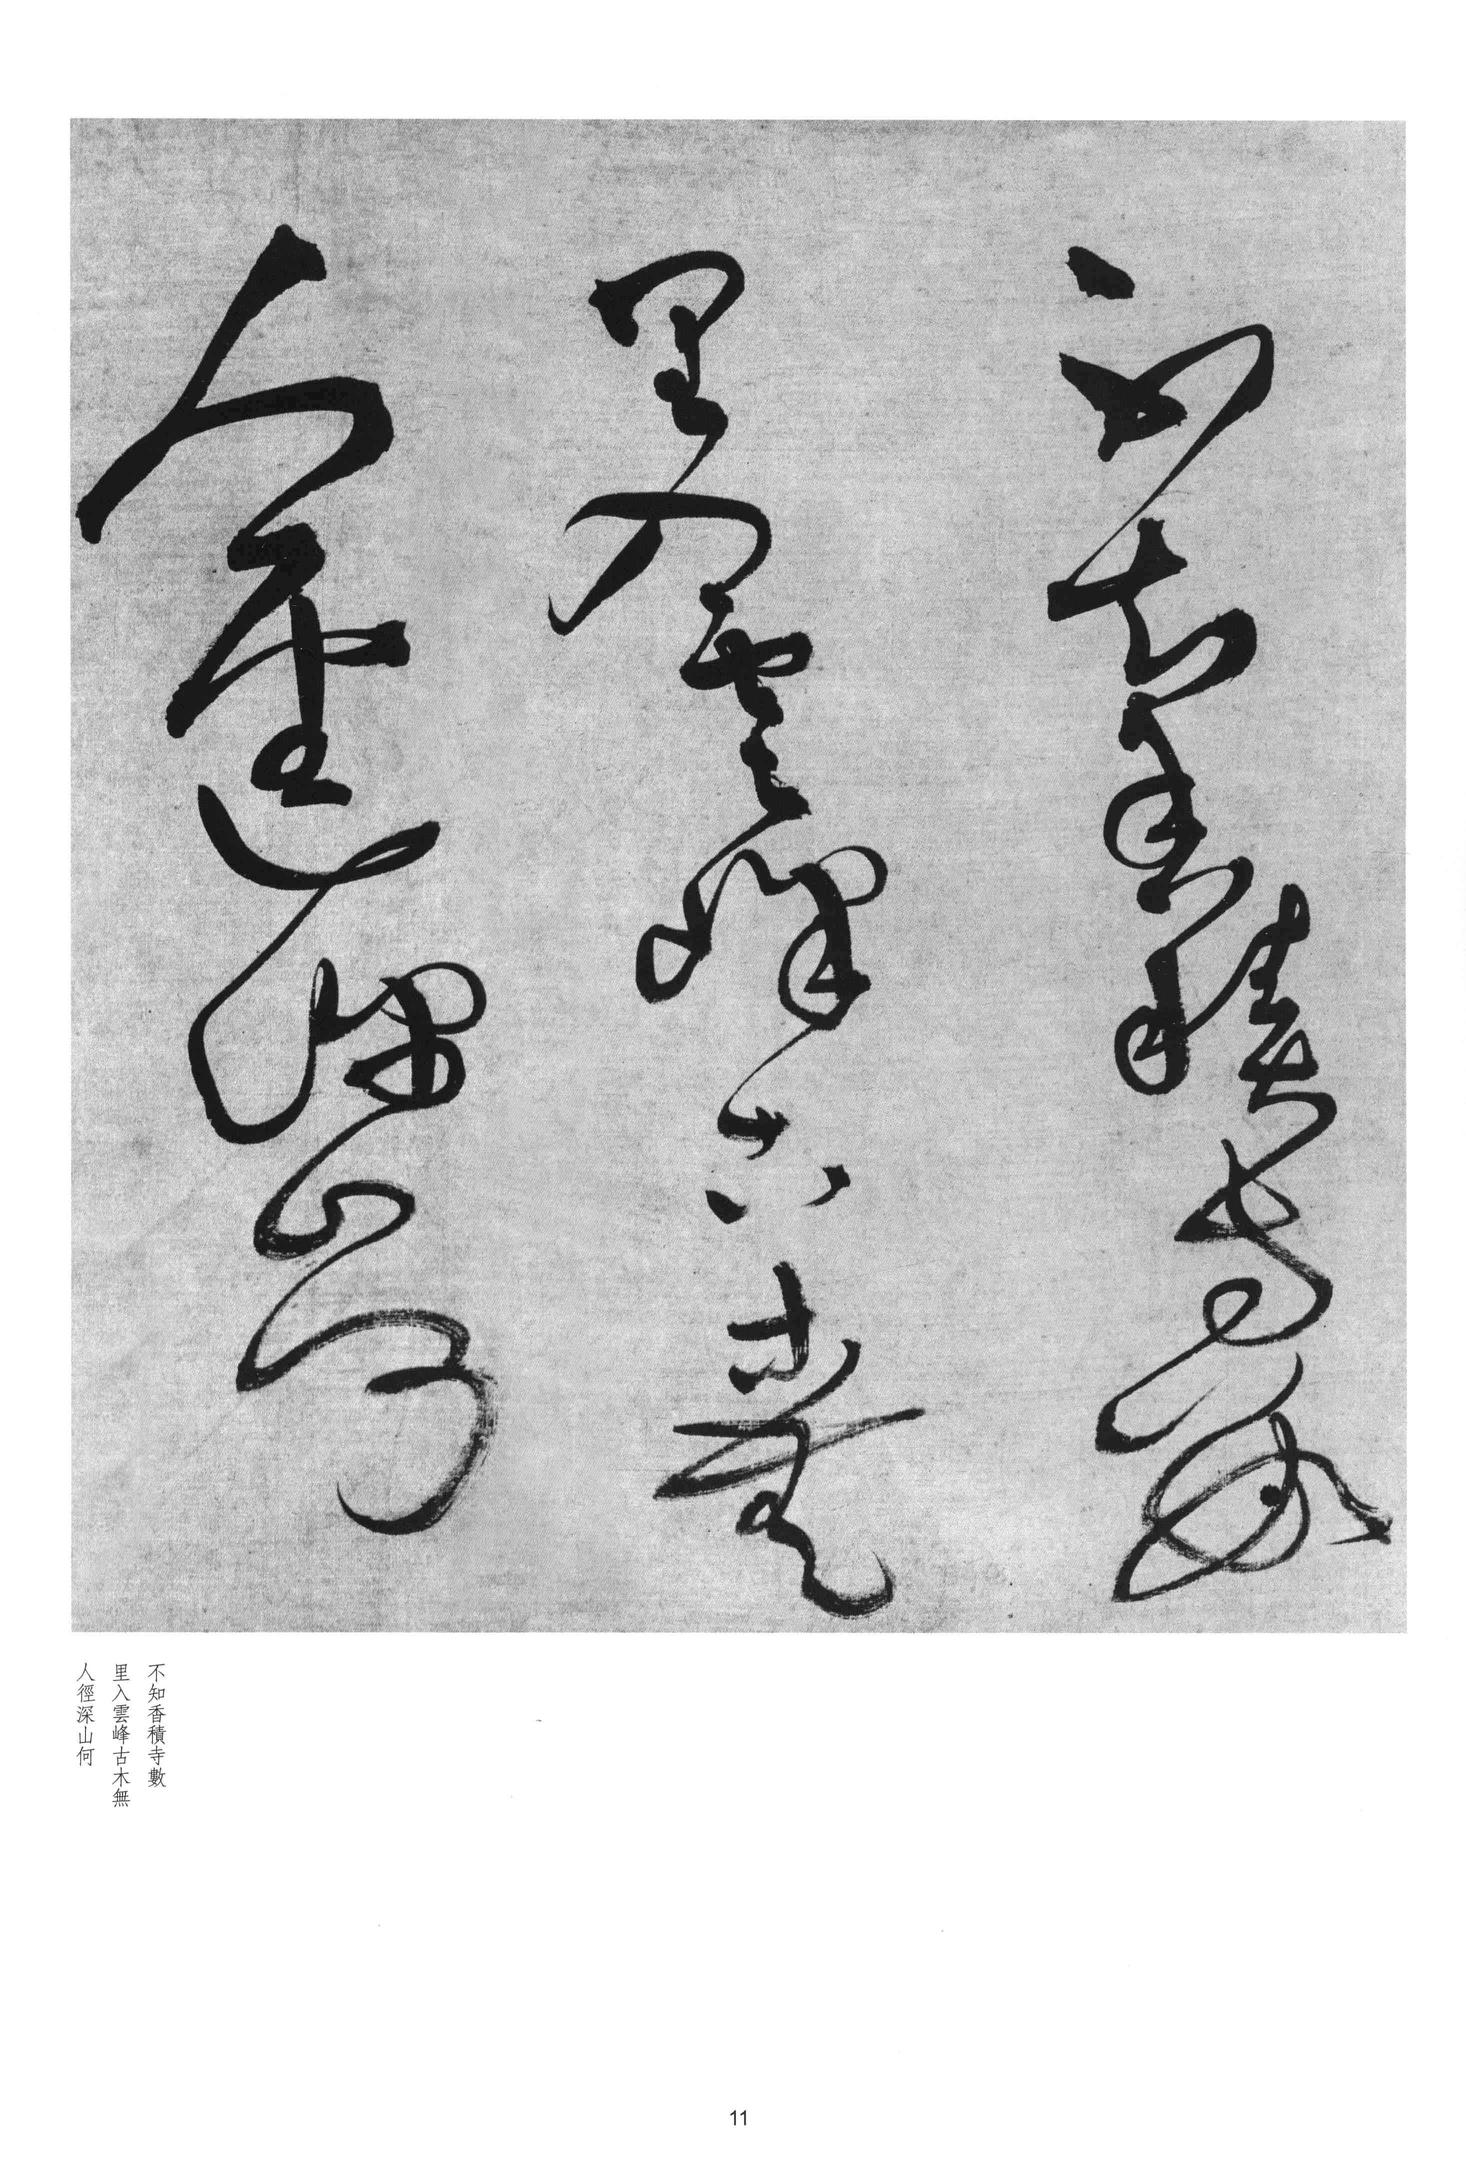 不知香積寺數
里入雲峰古木無
人徑深山何
不知香積寺數
里入雲峰古木無
人徑深山何
11